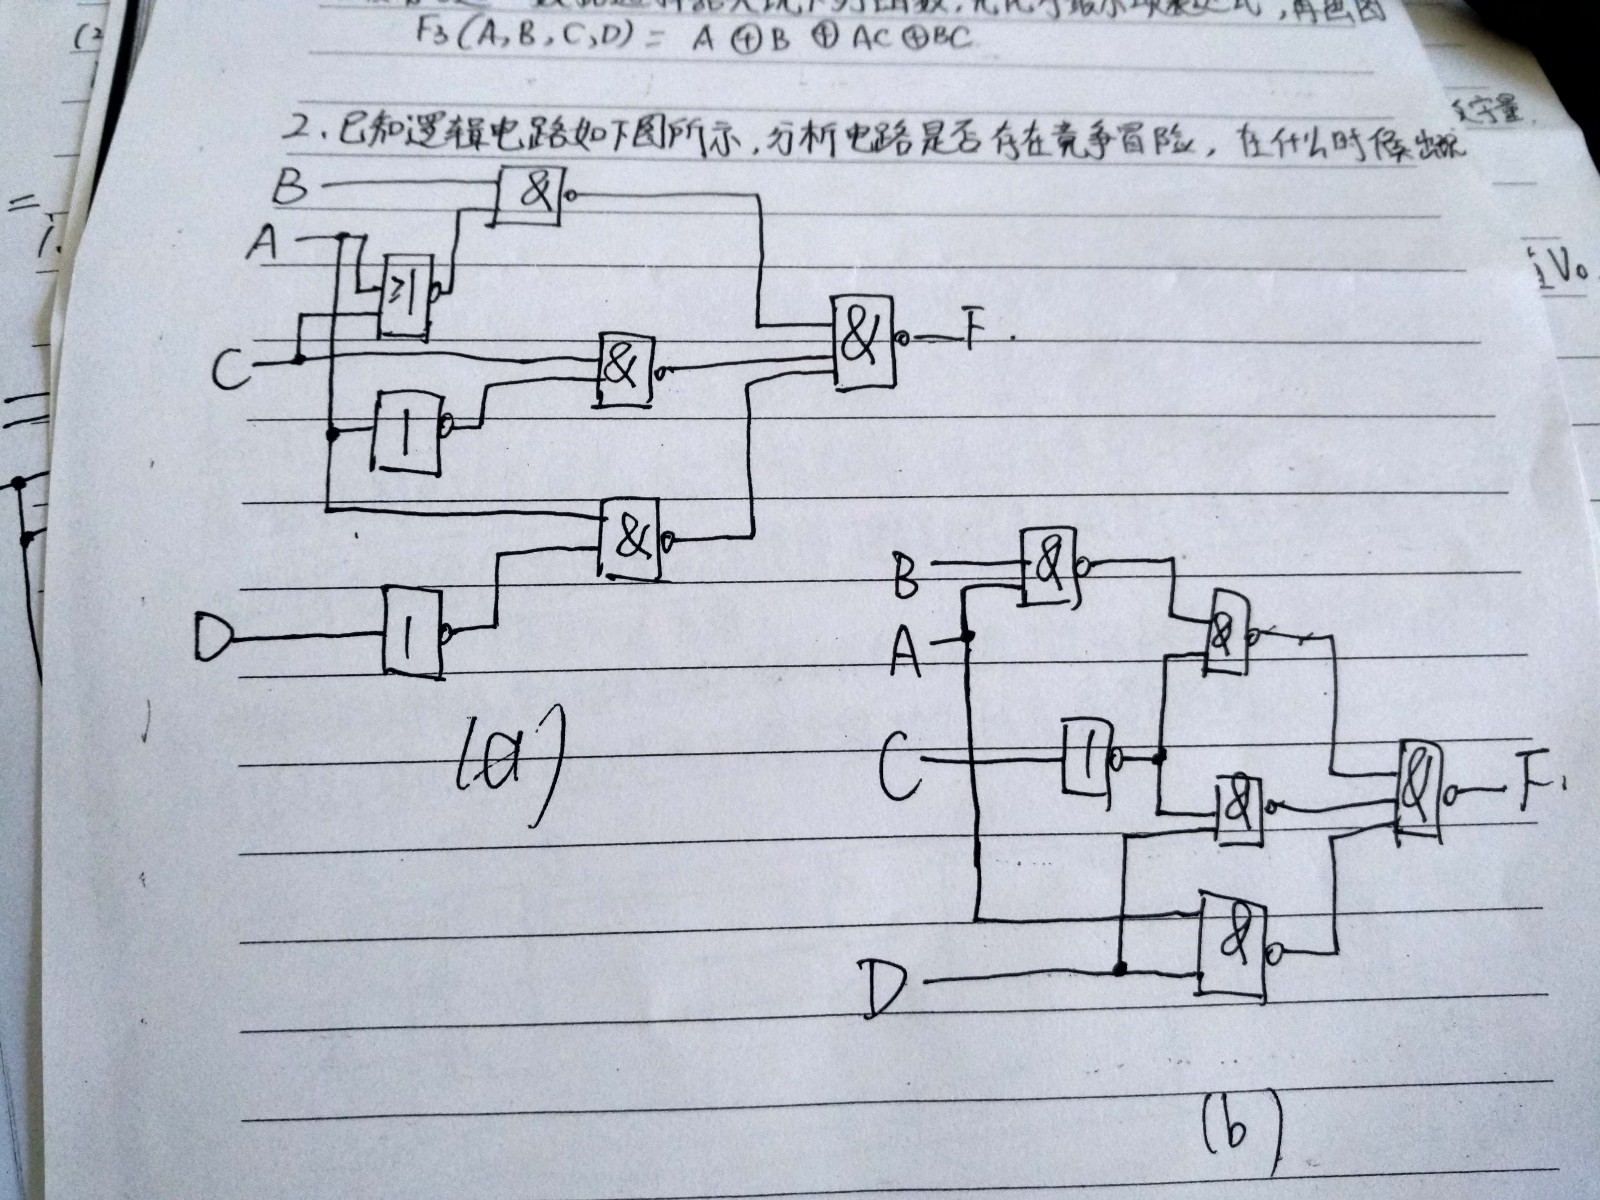 F₃(A,B,C,D) = A⊕B⊕AC⊕BC
2.已知逻辑电路如下图所示,分析电路是否存在竞争冒险,在什么时候出现
B
&
A
≥1
C
&
&
F.
1
&
D
1
(a)
B
&
A
&
C
1
&
&
F.
&
D
(b)
V₀